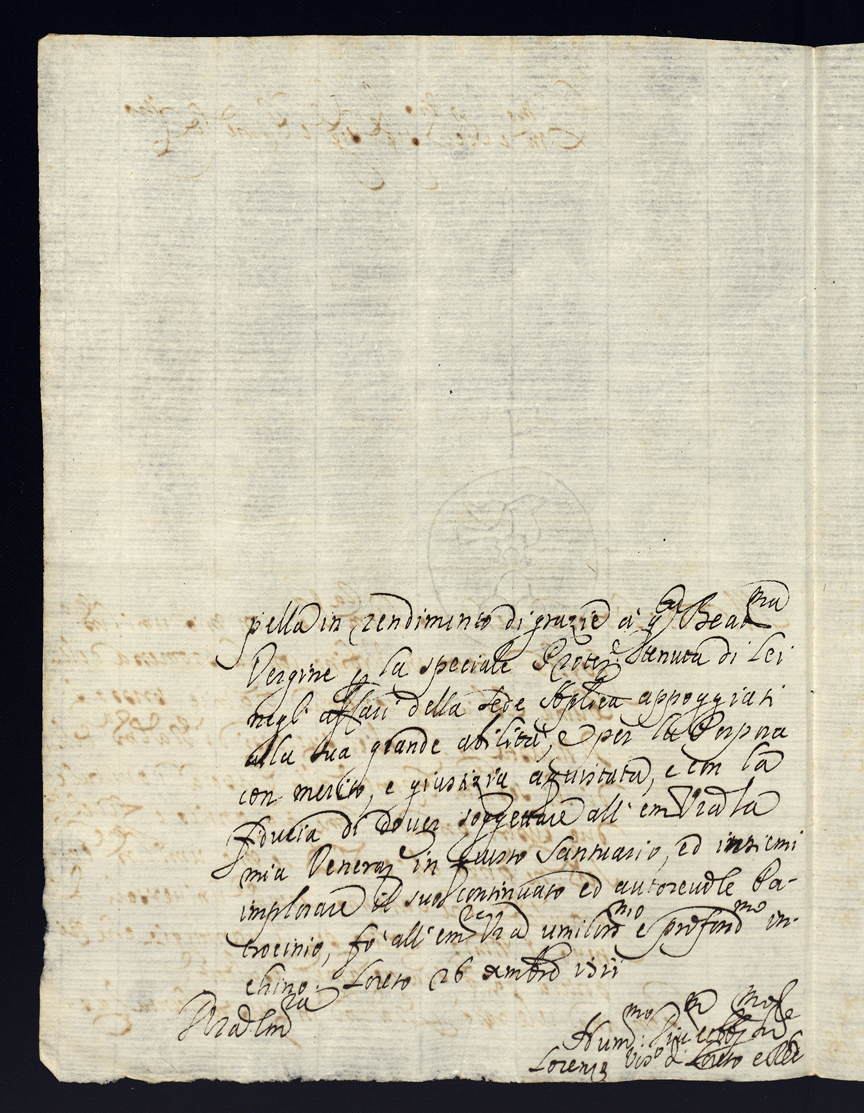 pella in rendimento di grazie à q.ta Beat.ma
Vergine p la speciale Protez.e tenuta di Lei
negl' affari della Sede Aplica appoggiati
alla sua grande abilità, e per la Porpora
con merito, e giustizia aquistata, e con la
fiducia di dover soggettare all' em. V.ra la
mia Veneraz.e in questo Santuario, ed insiemi
implorare il suo continuato ed autorevole Pa-
trocinio, fò all' em. V.ra umiliss.mo e profond.mo in-
chino. Loreto 26
V.ra Em.za
Hum.mo
Lorenzo Vesc.o di Loreto e